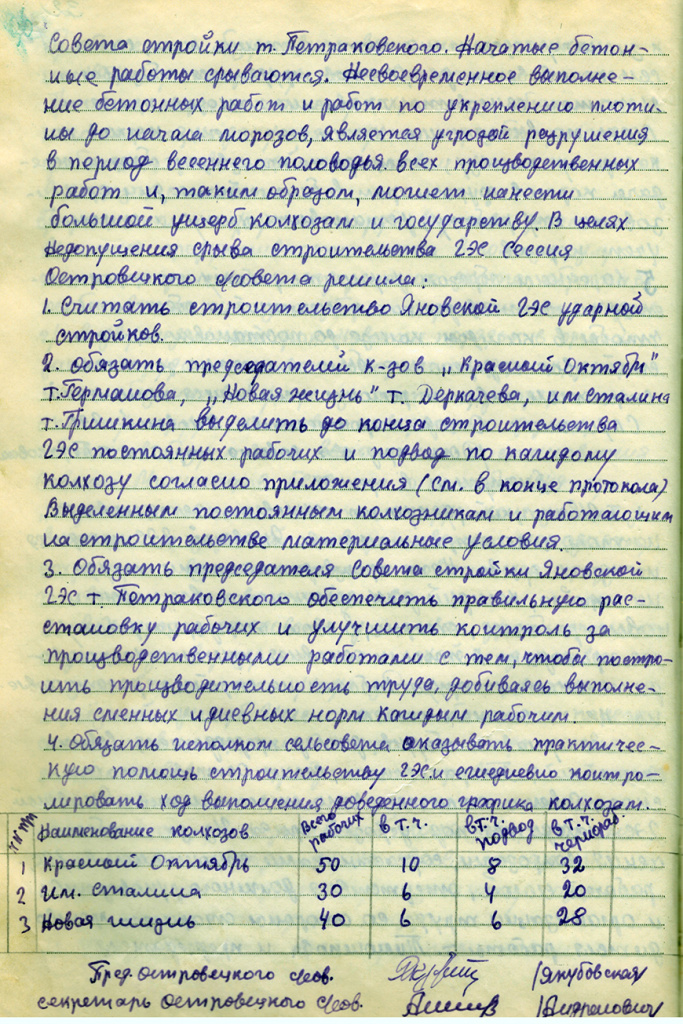 Совета стройки т. Петраковского. Начатые бетон-
ные работы срываются. Несвоевременное выполне-
ние бетонных работ и работ по укреплению плоти-
ны до начала морозов, является угрозой разрушения
в период весеннего половодья всех производственных
работ и, таким образом, может нанести
большой ущерб колхозам и государству. В целях
недопущения срыва строительства ГЭС Сессия
Островецкого с/совета решила:
1. Считать строительство Яновской ГЭС ударной
стройков.
2. Обязать председателей к-зов „Красный Октябрь"
т. Германова, „Новая жизнь" т. Деркачева, им Сталина
т. Гришкина выделить до конца строительства
ГЭС постоянных рабочих и подвод по каждому
колхозу согласно приложения (см. в конце протокола)
Выделенным постоянным колхозникам и работающим
на строительстве материальные условия.
3. Обязать председателя Совета стройки Яновской
ГЭС т. Петраковского обеспечить правильную рас-
становку рабочих и улучшить контроль за
производственными работами с тем, чтобы постро-
ить производительность труда, добиваясь выполне-
ния сменных и дневных норм каждым рабочим.
4. Обязать исполком сельсовета оказывать практичес-
кую помощь строительству ГЭС и ежедневно контро-
лировать ход выполнения доведенного графика колхозам.
№№ пп Наименование колхозов Всего рабочих в т.ч. в т.ч. подвод в т.ч.
1 Красный Октябрь 50 10 8 32
2 Им. Сталина 30 6 4 20
3 Новая жизнь 40 6 6 28
Пред. Островецкого с/сов. /Якубовская/
секретарь Островецкого с/сов. /Андролович/